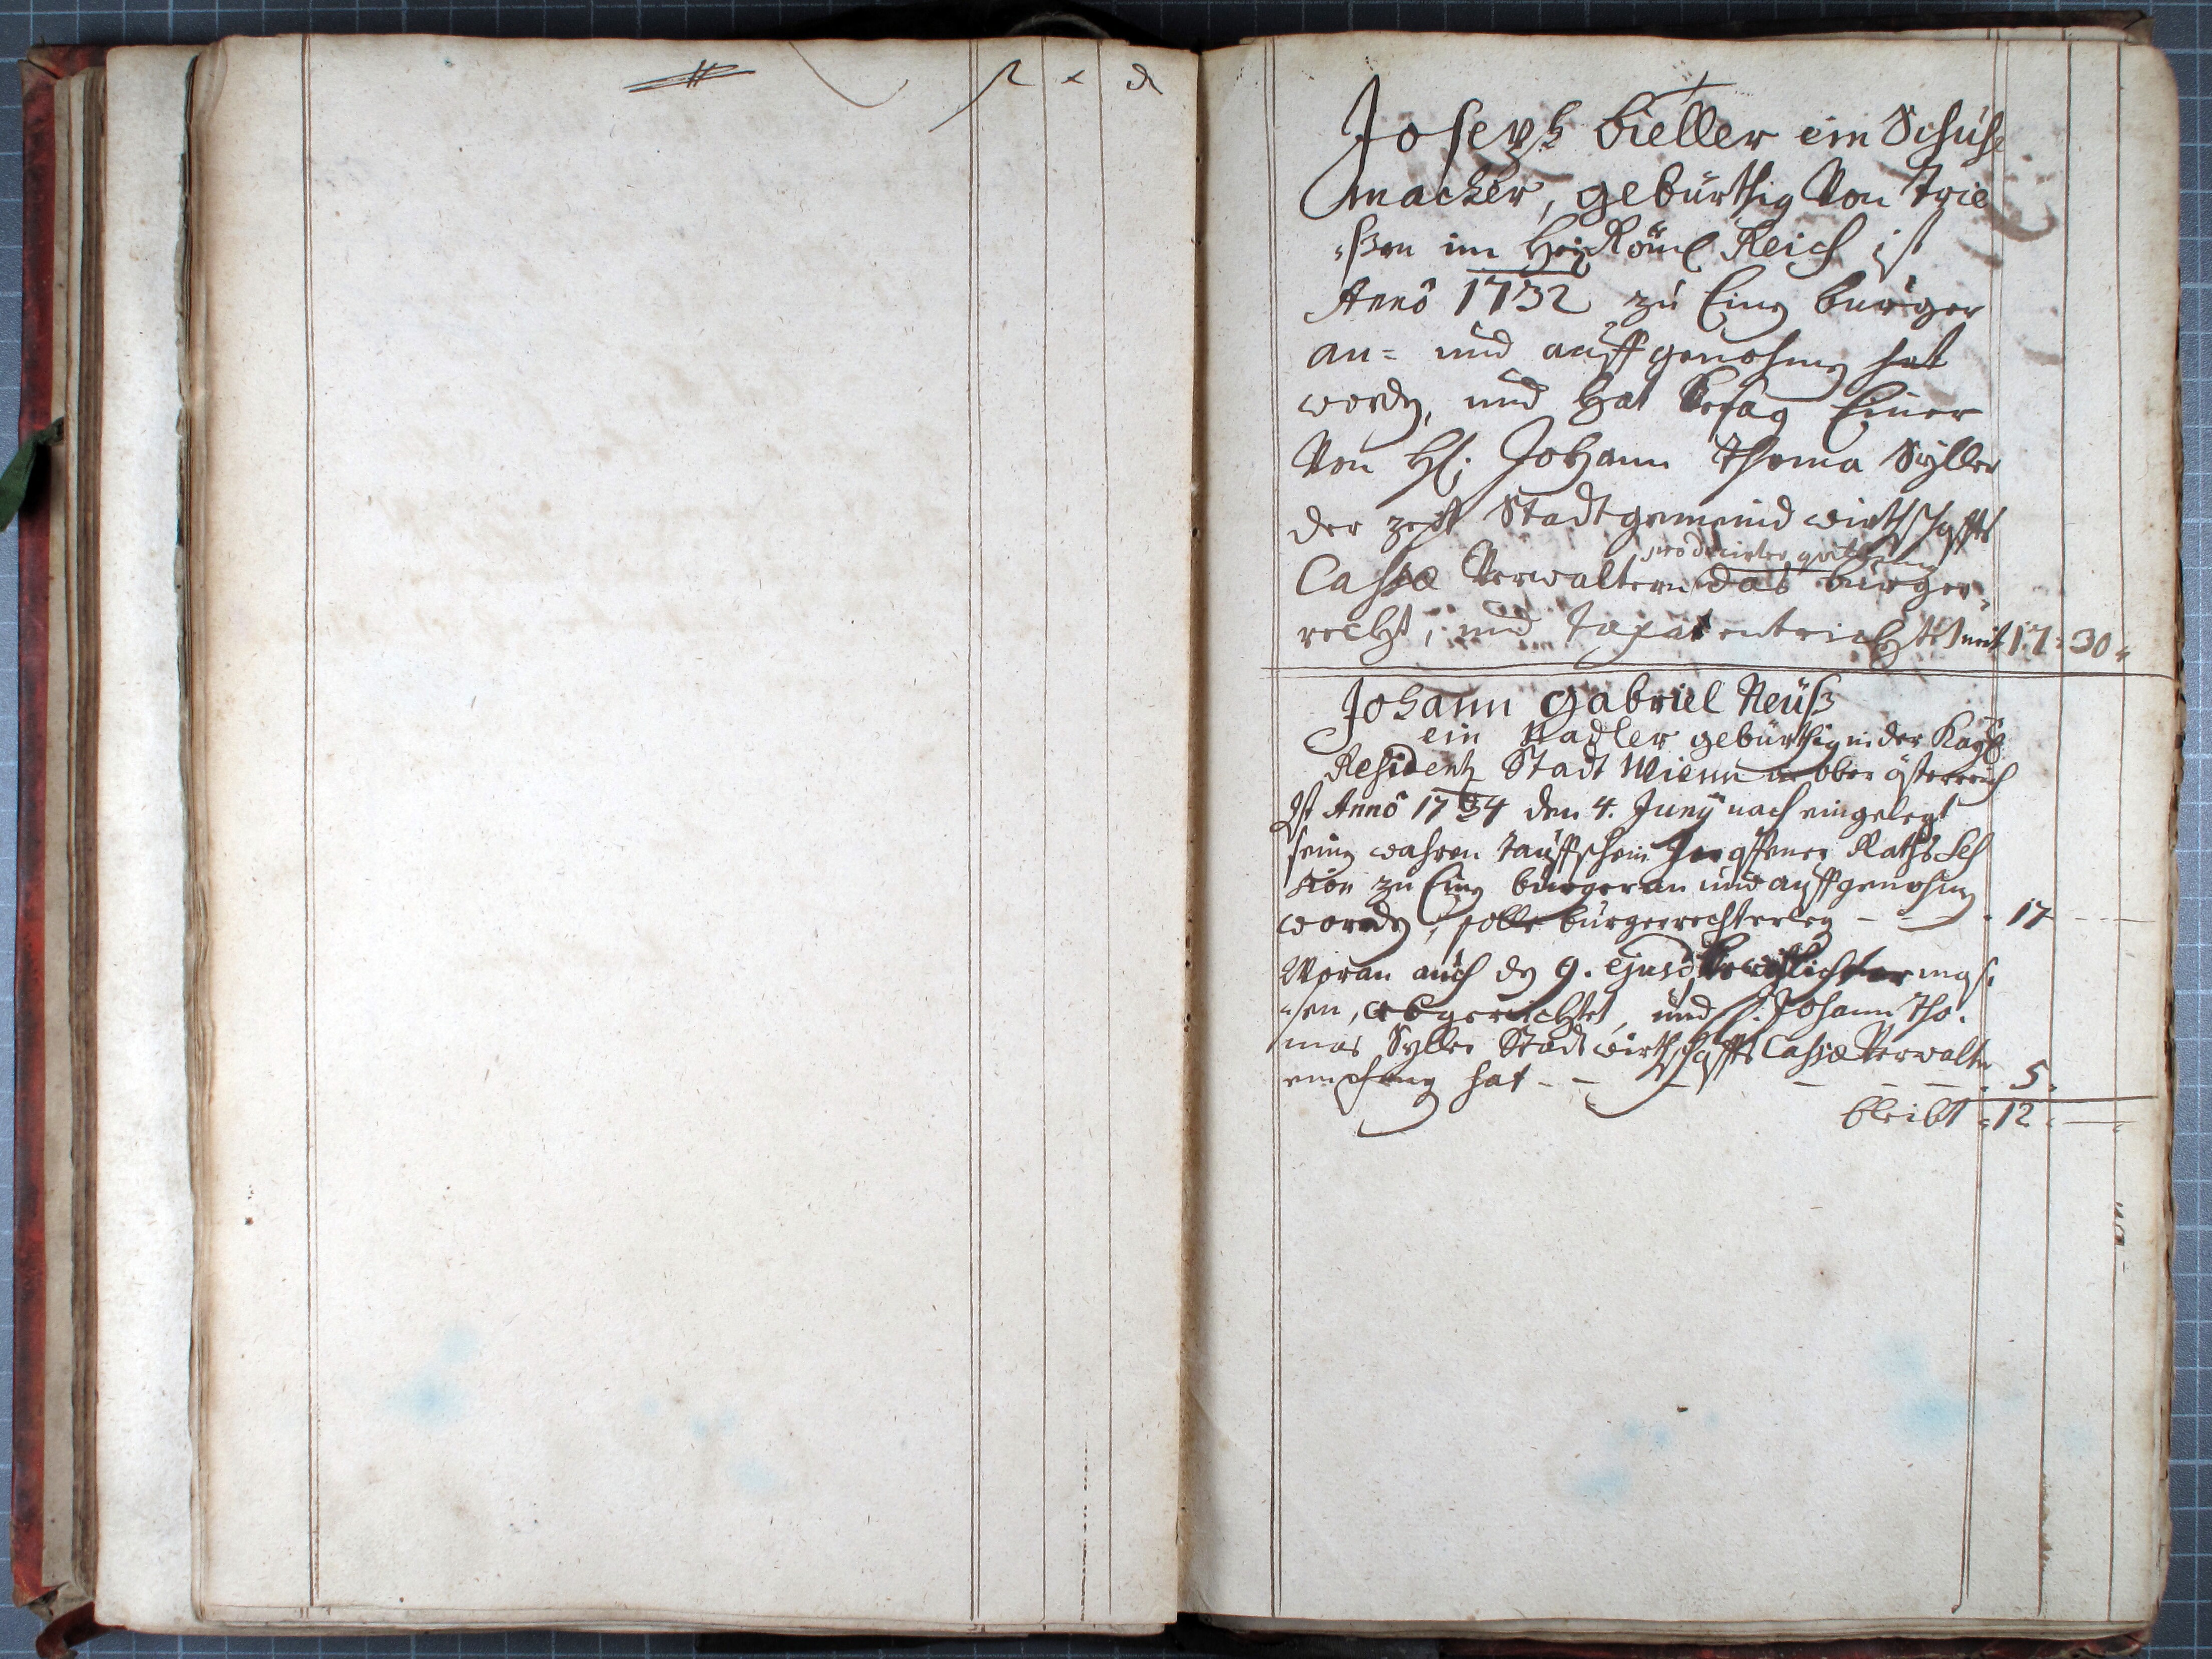 f x d
Joseph Bieller ein Schuh
macher, gebürthig Von Trie
ßen im Heÿ Röml Reich ist
Anno 1732 zu Einen burger
an= und auffgenohmen hat
worden, und hat besag Einer
Von H: Johann Thoma Syller
der zeit Stadtgemeind wirthschaffts
producirter quittung
Cassae Verwaltern das burger=
recht, und Taxa entrichtet mit 17 : 30 "
Johann Gabriel Neüß
ein Nadler gebürthig in der Kaÿß
Residentz Stadt Wienn in ober österreich
Ist Anno 1734 den 4. Junÿ nach eingelegt
seinen wahren Tauffschein Raths Ses
sion zu Einen burger an und auffgenohmen
worden, solle burgerrecht erlegen - - 17 - -
Woran auch den 9. ejusd
sen, abgerichtet, und H: Johann Tho=
mas Syller Stadt wirthschaffts Cassae Verwalter
empfang hat - - - - - - 5 "
bleibt = 12 : —